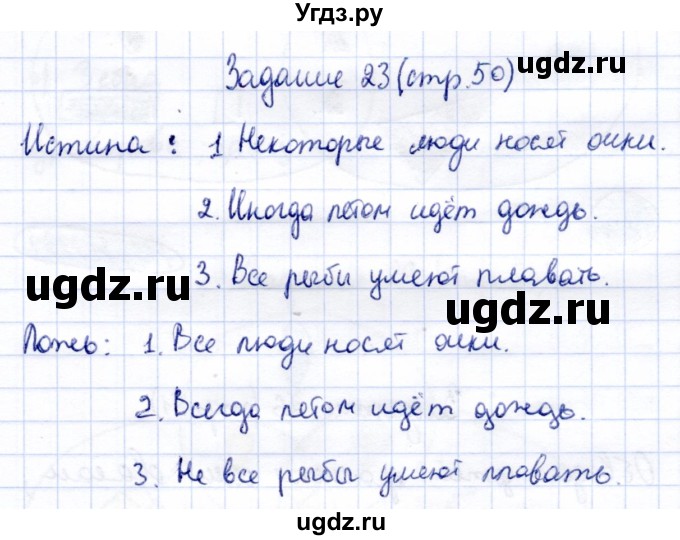 Угдз.ру
Задание 23 (стр. 50)
ugdz.ru
Истина: 1 Некоторые люди носят очки.
2. Иногда летом идёт дождь.
3. Все рыбы умеют плавать.
ugdz.ru
ugdz.ru
Ложь: 1. Все люди носят очки.
2. Всегда летом идёт дождь.
3. Не все рыбы умеют плавать.
ugdz.ru